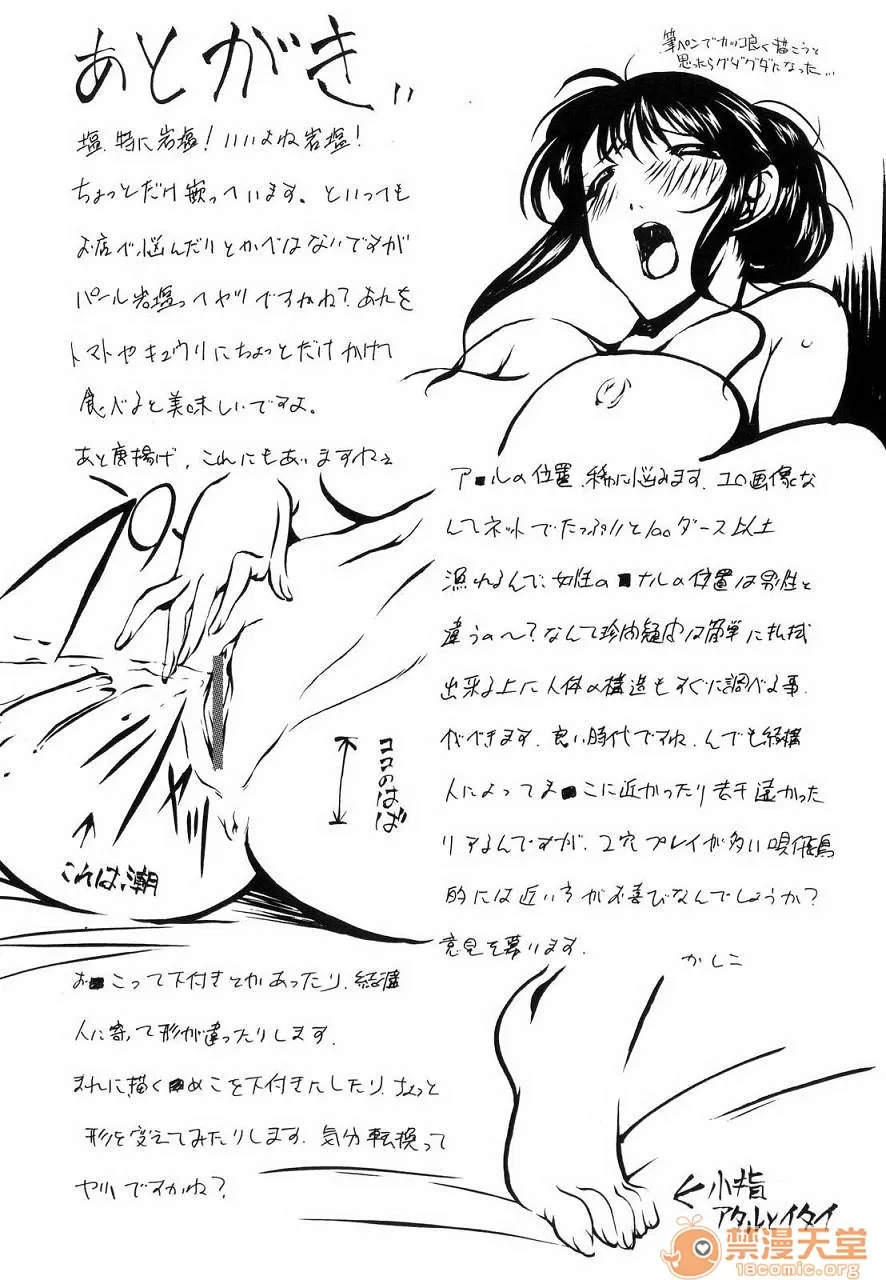 あとがき
筆ペンでカッコ良く描こうと
思ったらグダグダになった…
塩、特に岩塩！いいよね岩塩！
ちょっとだけ嵌っています。といっても
お店で悩んだりとかではないですが
パール岩塩ってヤツですかね？あれを
トマトやキュウリにちょっとだけかけて
食べると美味しいですよ。
あと唐揚げ、これにもあいますねェ
ア■ルの位置、稀に悩みます。エロ画像な
んてネットでたっぷりと100ダース以上
漁れるんで、女性の■ナルの位置は男性と
違うの〜？なんて は簡単に払拭
出来る上に人体の構造もすぐに調べる事
ができます。良い時代ですね。んでも結構
人によってま■こに近かったり若干遠かった
りアるんですが、2穴プレイが多い唄飛鳥
的には近い方がお喜びなんでしょうか？
意見を募ります。
かしこ
ココのはば
これは、潮
お■こって下付きとかあったり、結構
人に寄って形が違ったりします。
まれに描く■めこを下付きにしたり、ちょっと
形を変えてみたりします。気分転換って
ヤツですかね？
←小指
アタルとイタイ
禁漫天堂
18comic.org